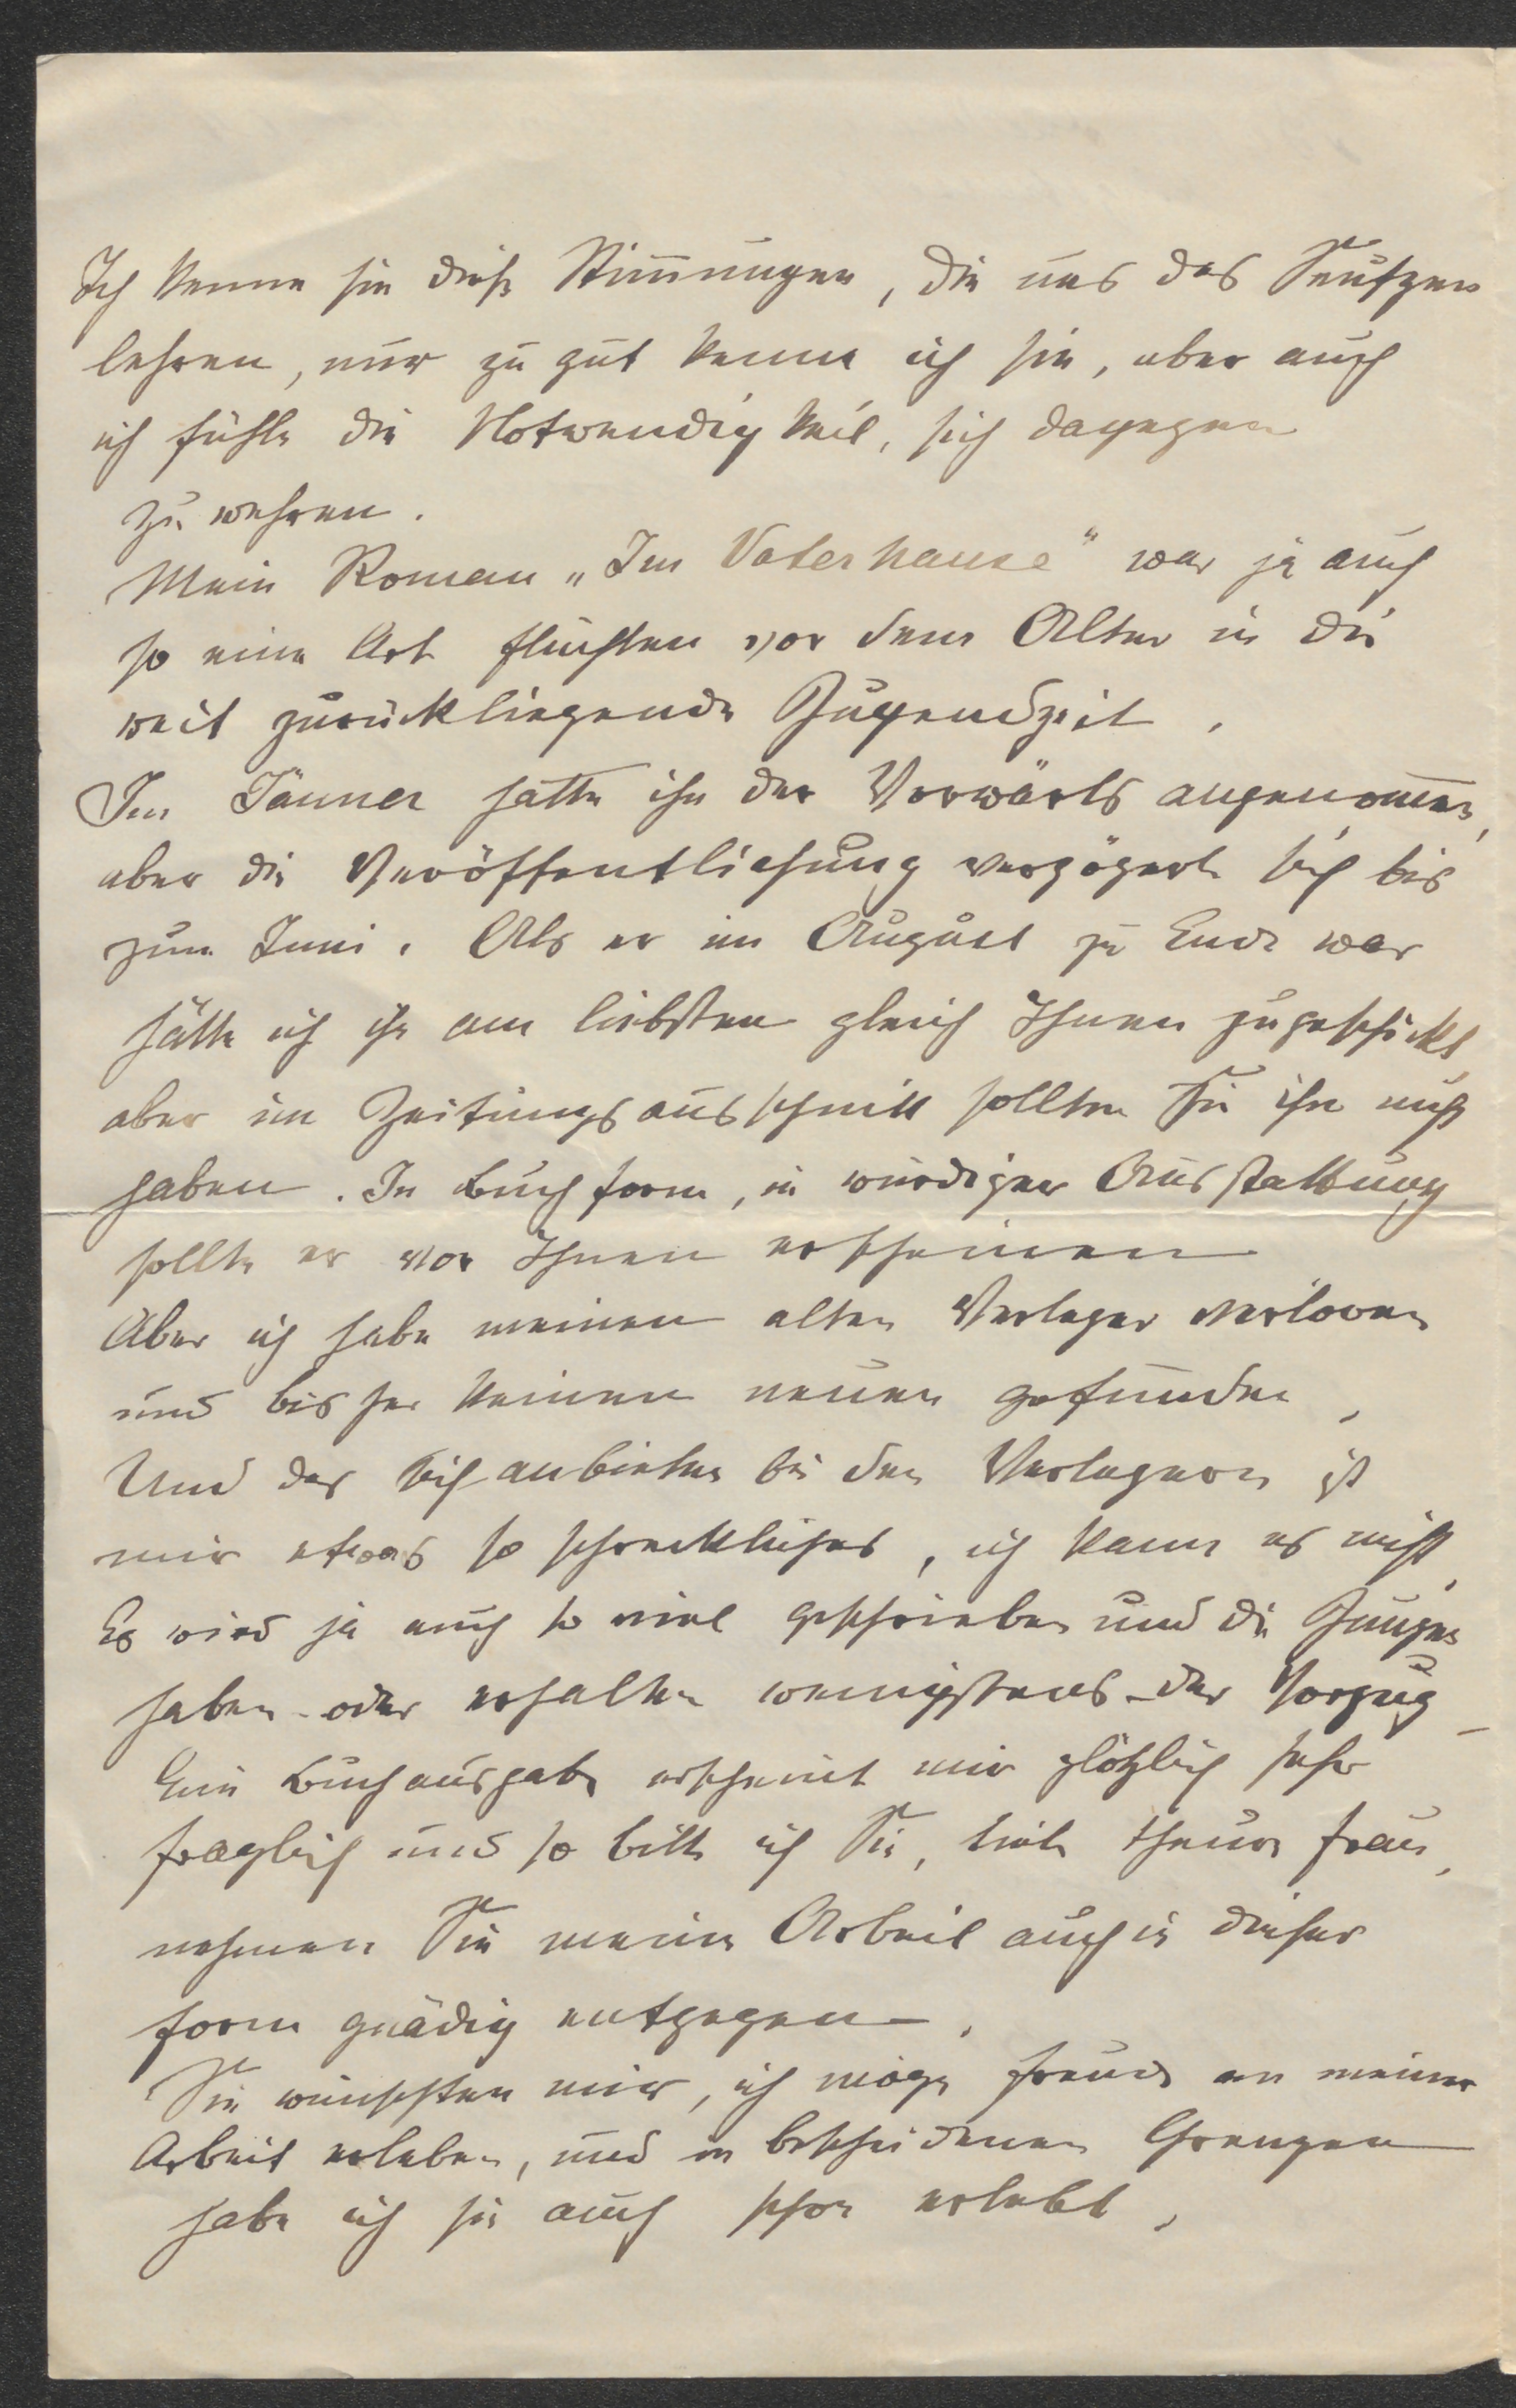 Ich kenne sie diese Stimmungen, die uns das Seufzen
lehren, nur zu gut kenne ich sie, aber auch
ich fühle die Notwendigkeit, sich dagegen
zu wehren.
Mein Roman „Im Vaterhause“ war ja auch
so eine Art flüchten vor dem Alter in die
weit zurückliegende Jugendzeit.
Im Jänner hatte ihn der Vorwärts angenommen,
aber die Veröffentlichung verzögerte sich bis
zum Juni. Als er im August zu Ende war
hätte ich ihn am liebsten gleich Ihnen zugeschickt,
aber im Zeitungsausschnitt sollten Sie ihn nicht
haben. In Buchform, in würdiger Ausstattung
sollte er vor Ihnen erscheinen
Aber ich habe meinen alten Verleger verloren
und bisher keinen neuen gefunden,
Und das sich anbieten bei den Verlegern ist
mir etwas so schreckliches, ich kann es nicht,
Es wird ja auch so viel geschrieben und die Jungen
haben - oder erhalten wenigstens - den Vorzug
Eine Buchausgabe erscheint mir plötzlich sehr
fraglich und so bitte ich Sie, liebe theure Frau,
nehmen Sie meine Arbeit auch in dieser
Form gnädig entgegen.
Sie wünschten mir, ich möge Freude an meiner
Arbeit erleben, und in bescheidenen Grenzen
habe ich sie auch schon erlebt,